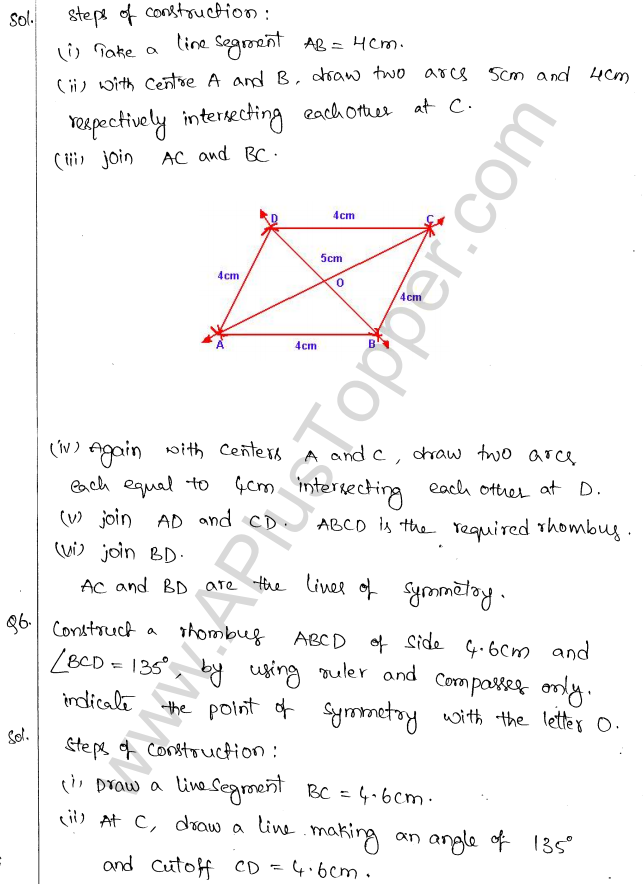 Sol. Steps of construction :
(i) Take a line segment AB = 4cm.
(ii) With centre A and B, draw two arcs 5cm and 4cm
respectively intersecting each other at C.
(iii) join AC and BC.
D 4cm C
5cm
4cm O 4cm
A 4cm B
(iv) Again with centers A and C, draw two arcs
each equal to 4cm intersecting each other at D.
(v) join AD and CD. ABCD is the required rhombus.
(vi) join BD.
AC and BD are the lines of symmetry.
Q6. Construct a rhombus ABCD of side 4.6cm and
∠BCD = 135°, by using ruler and compasses only.
indicate the point of symmetry with the letter O.
Sol. Steps of construction :
(i) Draw a line segment BC = 4.6cm.
(ii) At C, draw a line making an angle of 135°
and cutoff CD = 4.6cm.
www.APlusTopper.com